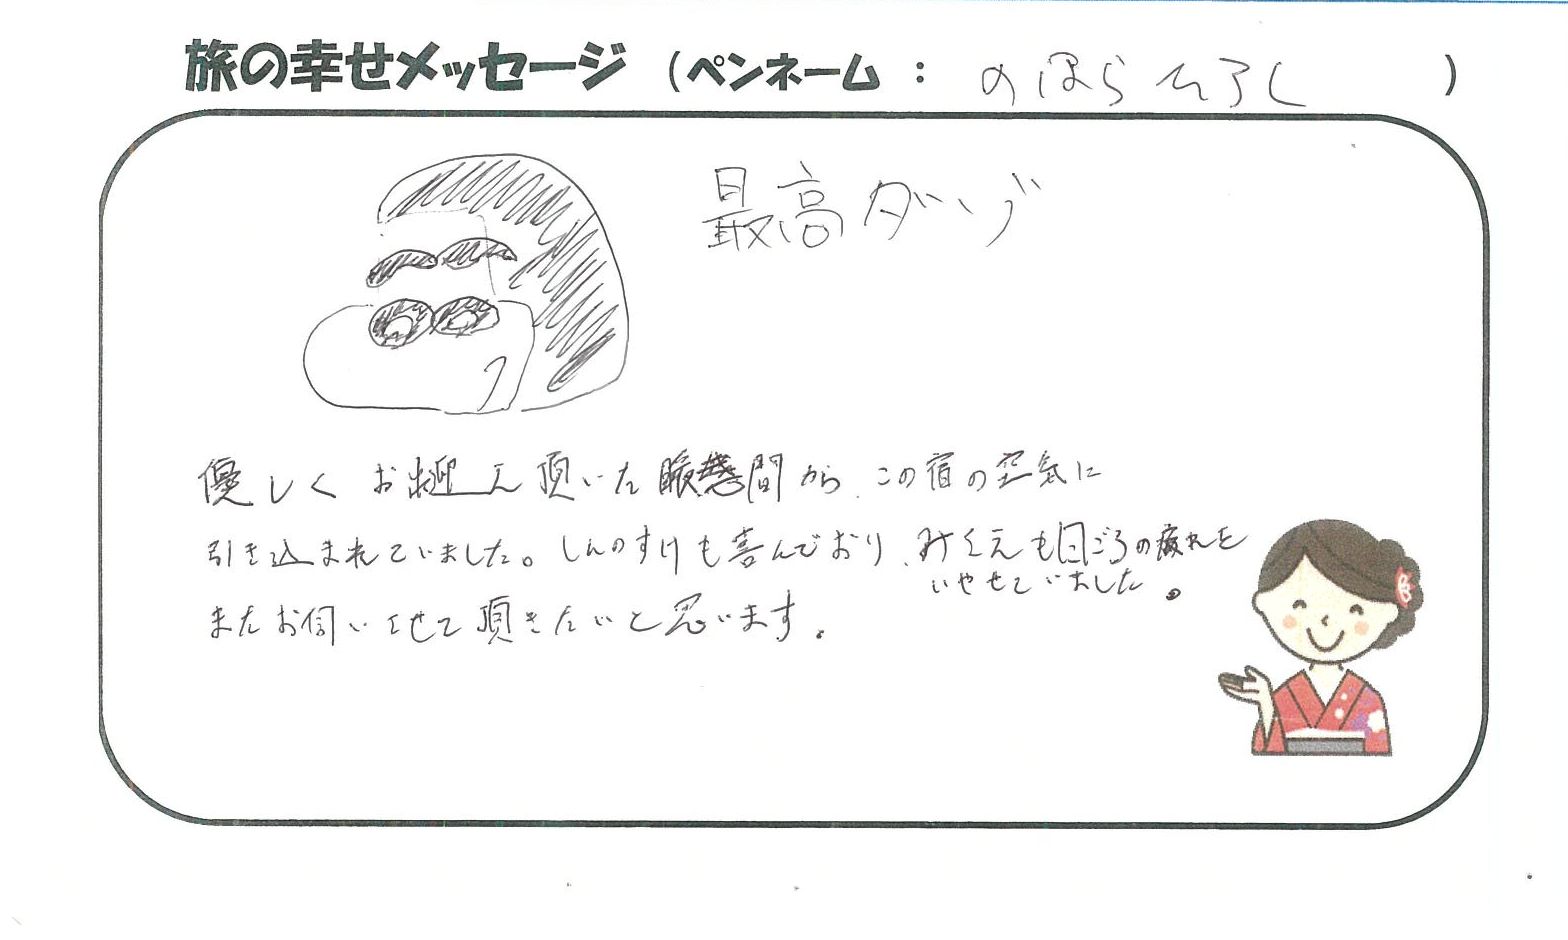 旅の幸せメッセージ (ペンネーム : のはらひろし )
最高だゾ
優しくお迎え頂いた瞬間から、この宿の空気に
引き込まれていました。しんのすけも喜んでおり、みさえも日ごろの疲れを
いやせていました。
またお伺いさせて頂きたいと思います。